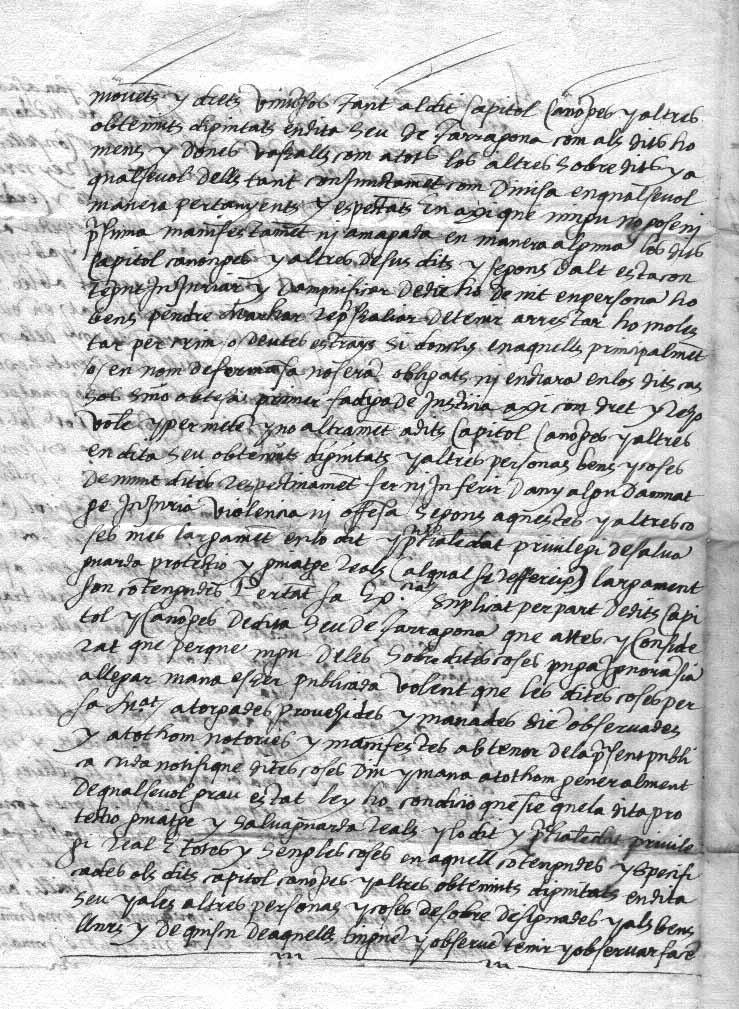 movens y drets universos tant al dit Capitol Canonges y altres
obtenints dignitats en dita Seu de Tarragona com als dits ho
mens y dones vassalls com a tots los altres sobredits y a
qualsevol dells tant conjunctament com divisa en qualsevol
manera pertanyents y espectats en axi que ningu no pose ni
presuma manifestament ni amagada en manera alguna los dits
Capitol canonges y altres desus dits y segons dalt esta con
tengut injuriar y dampnificar de die ho de nit en persona ho
bens pendre marchar represaliar detenir arrestar ho moles
tar per crim o deutes estranys si donchs en aquells principalment
o en nom de fermansa no seran obligats ni encara en los dits cas
sos sino obtesa primer fadiga de Justicia axi com dret y raho
vole y permete y no altrament a dits Capitol Canonges y altres
en dita Seu obtenints dignitats y altres personas bens y coses
de munt dites respectivament fer ni inferir dany algu damnat
ge injuria violencia ni offensa segons aquestes y altres co
ses mes largament en lo dit y prechalendat privilegi de salva
guarda protectio y guiatge reals (al qual se refereix) largament
son contengudes E ertat sa Ex.cia suplicat per part de dits Capi
tol y Canonges de dita Seu de Tarragona que attes y conside
rat que perque ningu de les sobredites coses puga ignorancia
allegar mana esser publicada volent que les dites coses per
sa Mat atorgades provehides y manades sien observades
y a tothom notories y manifestes ab tenor de la present publi
ca crida notifique dites coses diu y mana a tothom generalment
de qualsevol grau estat ley ho condicio que sie que la dita pro
tectio guiatge y salvaguarda reals y lo dit y prechalendat privile
gi real E totes y sengles coses en aquell contengudes y specifi
cades als dits capitol canonges y altres obtenints dignitats en dita
Seu y a les altres personas y coses desobre designades y als bens
llurs y de quiscu de aquells tinguen y observen tenir y observar facen